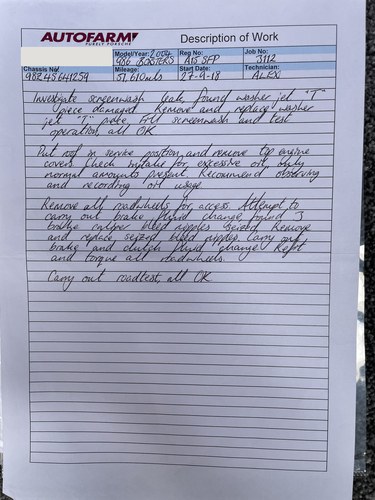 AUTOFARM
PURELY PORSCHE
Description of Work
Model/Year: 2004
986 BOXTER S
Reg No:
A15 SFP
Job No:
3112
Chassis No:
Mileage:
51,610 mls
Start Date:
27-9-18
Technician:
ALEX
Investigate screenwash leak, found washer jet "T"
piece damaged. Remove and replace washer
jet "T" piece. Fill screenwash and test
operation, all OK
Put roof in service position and remove top engine
covers. Check intake for excessive oil, only
normal amounts present. Recommend observing
and recording oil usage
Remove all roadwheels for access. Attempt to
carry out brake fluid change, found 3
brake caliper bleed nipples seized. Remove
and replace seized bleed nipples. Carry out
brake and clutch fluid change. Refit
and torque all roadwheels.
Carry out roadtest, all OK